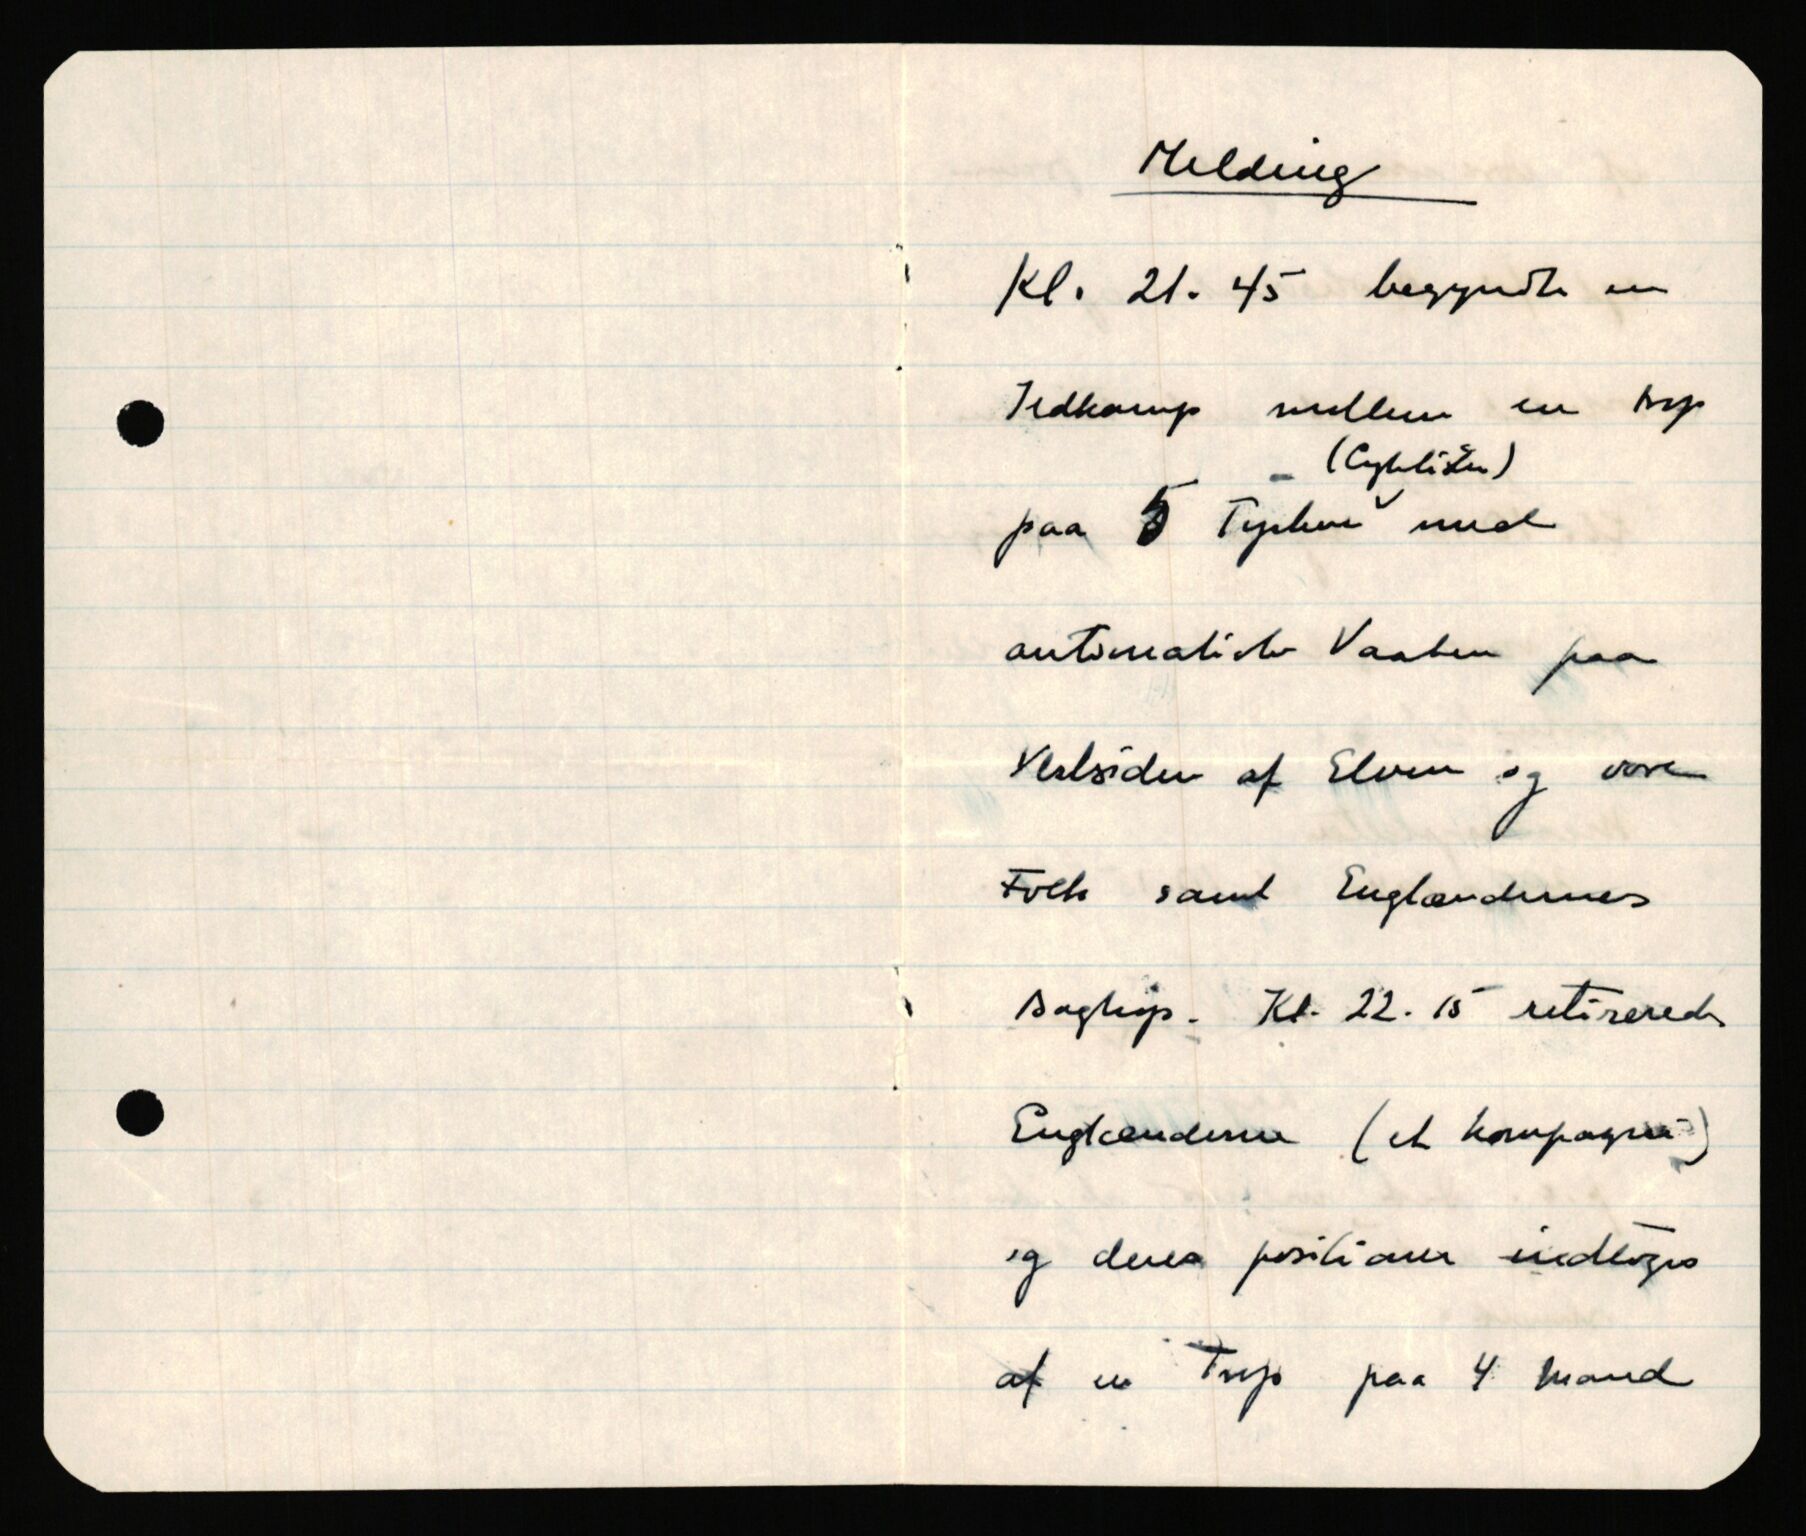 Melding
Kl. 21.45 begyndte en
Ildkamp mellem en trop
(Cyklister)
paa 5 Tyskere med
automatiske Vaaben paa
Vestsiden af Elven og vore
Folk samt Englændernes
Bagtrop. Kl. 22.15 retirerede
Englænderne (et kompagni)
og deres positioner indtoges
af en Trop paa 4 Mand